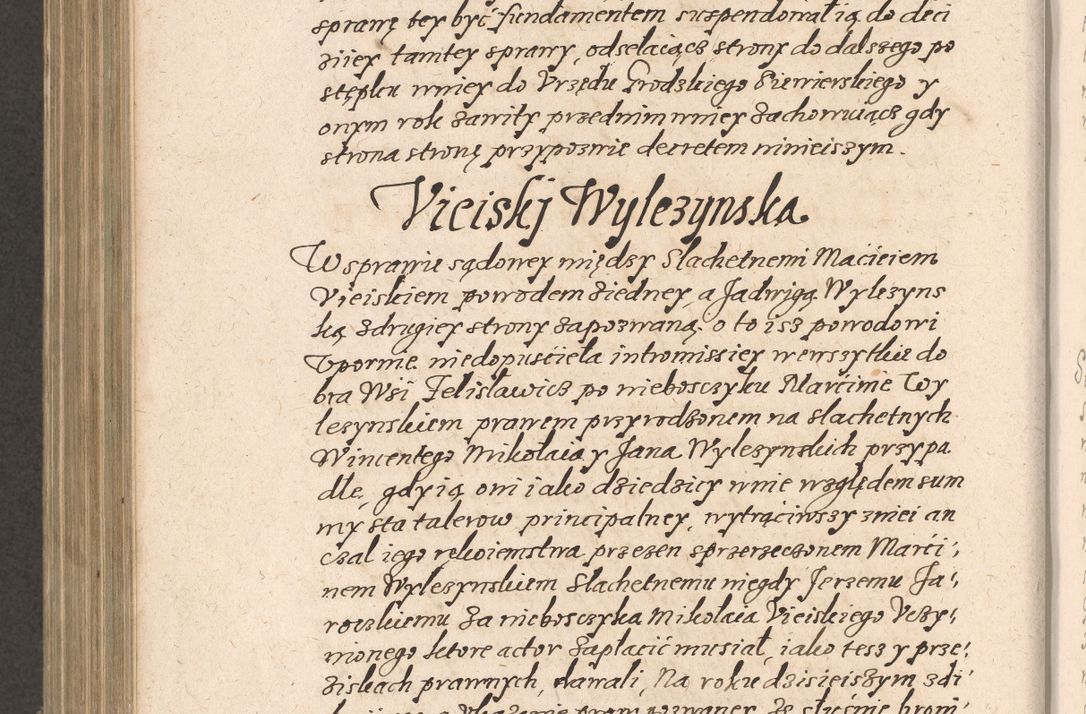 sprawę tey być fundamentem suspendował ią do deci
ziiey tamtey sprawy, odsełaiącz strony do dalszego po
stępku wniey do Vrzędu Grodzkiego Siewierskiego y
onym rok zawity przednim wniey zachowuiącz gdy
strona stronę przypozwie decretem ninieiszym.
Vieiskj Wylezynska
W sprawie sądowey między Slachetnemi Macieiem
Vieiskiem powodem ziedney, a Jadwigą Wylezyns
ką zdrugiey strony zapozwaną, o to isz powodowi
Vpornie niedopusciela intromissiey wewszytkie do
bra Wsi Felisławicz po nieboszczyku Marcinie Wy
lezynskiem prawem przyrodzonem na slachetnych
Wincentego Mikołaia y Jana Wylezynskich przypa
dłe, gdy ią oni iako dziedzicy wnie względem sum
my sta talerow principalney, wytrąciwszy zniei an
czal iego rękoiemstwa przezen sprzerzeczonem Marci,
nem Wylezynskiem Slachetnemu niegdy Jerzemu Ja,
roczkiemu za nieboszczyka Mikołaia Vieiskiego Vczy,
nionego ktore actor zapłacić musiał, iako tesz y prze,
ziskach prawnych, dawali, Na roku dzisieiszym zdi